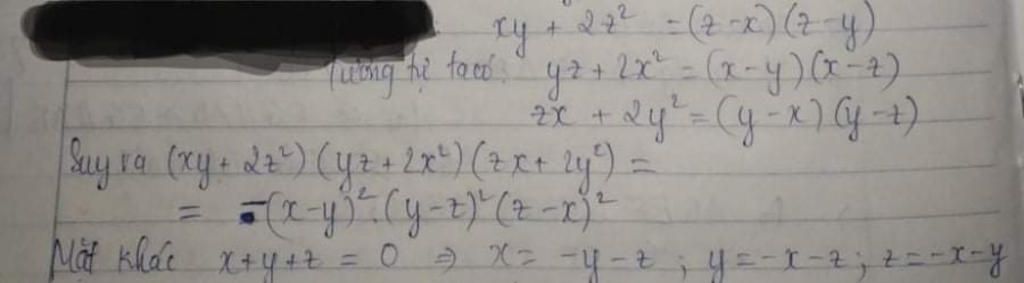 xy + 2z² = (z-x)(z-y)
Tương tự ta có: yz + 2x² = (x-y)(x-z)
zx + 2y² = (y-x)(y-z)
Suy ra (xy + 2z²)(yz + 2x²)(zx + 2y²) =
= -(x-y)².(y-z)²(z-x)²
Mặt khác x+y+z = 0 ⇒ x = -y-z ; y = -x-z ; z = -x-y